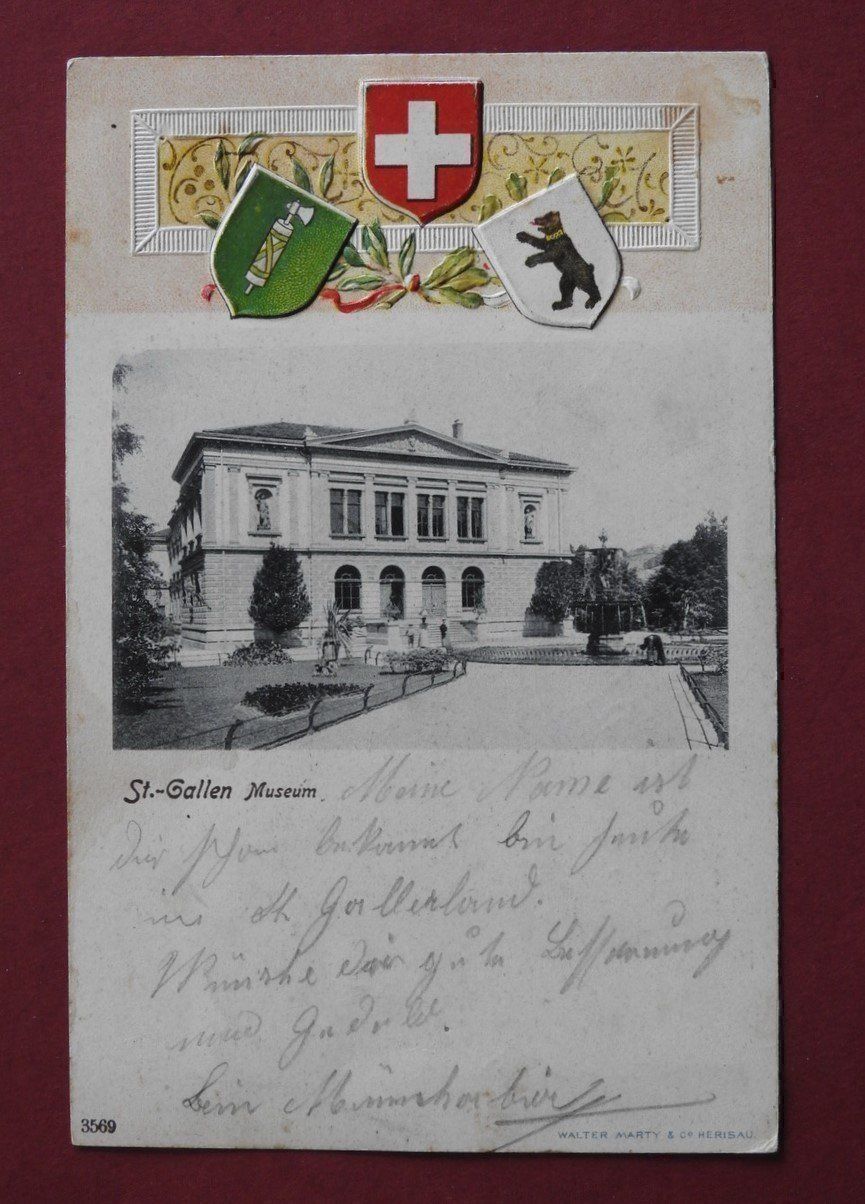 St.-Gallen Museum. Meine Name ist
dir schon bekannt bin heute
ins St. Gallerland.
Wünsche dir gute Besserung
und Geduld.
beim
3569
WALTER MARTY & Co HERISAU